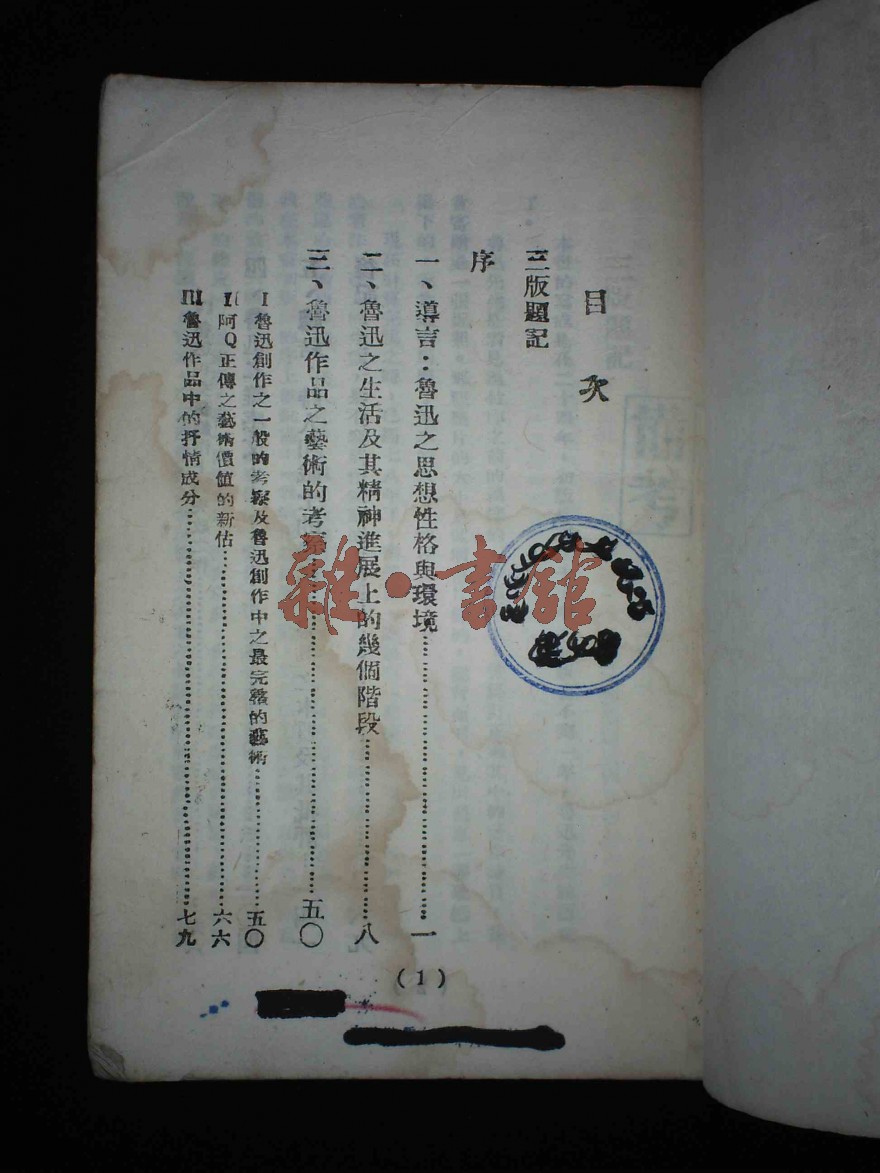 目次
三版題記
序
一、導言：魯迅之思想性格與環境……一
二、魯迅之生活及其精神進展上的幾個階段……八
三、魯迅作品之藝術的考察……五〇
I 魯迅創作之一般的考察及魯迅創作中之最完整的藝術……五〇
II 阿Q正傳之藝術價值的新估……六六
III 魯迅作品中的抒情成分……七九
(1)
雜·書館